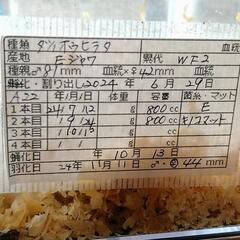 種類 ダイオウヒラタ 血統
産地 E-ジャワ 累代 WF2
種親♂81mm 血統 ♀42mm 血統
割り出し2024年 6月 29日
A.22 年/月/日 体重 容量 菌糸・マット
1本目 24/7/12 g 800cc E
2本目 g 800cc キノコマット
3本目 g cc
4本目 g cc
蛹化日 年 10月 13日
羽化日 24年11月11日 ♂・♀ 44mm